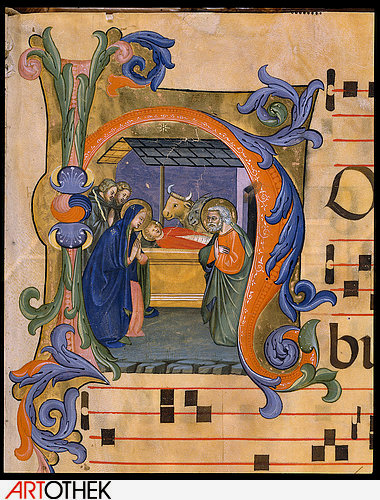 O
bu
ARTOTHEK